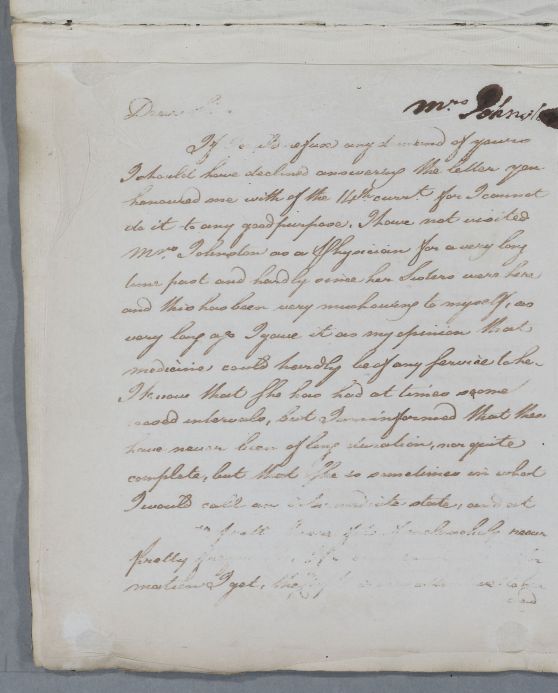 Mrs Johnst
Dear
If I refuse any demand of yours
I should have declined answering the letter you
honoured me with of the 14th currt. for I cannot
do it to any good purpose. I have not visited
Mrs. Johnston as a Physician for a very long
time past and hardly since her Sisters were here
and this has been very much owing to myself, as
very long ago I gave it as my opinion that
medicine could hardly be of any Service to her
I know that She has had at times some
intervals, but I am informed that these
have never been of long duration, nor quite
complete, but that She is sometimes in what
I would call an intermediate state, and at
never
pretty
mation I get,
and